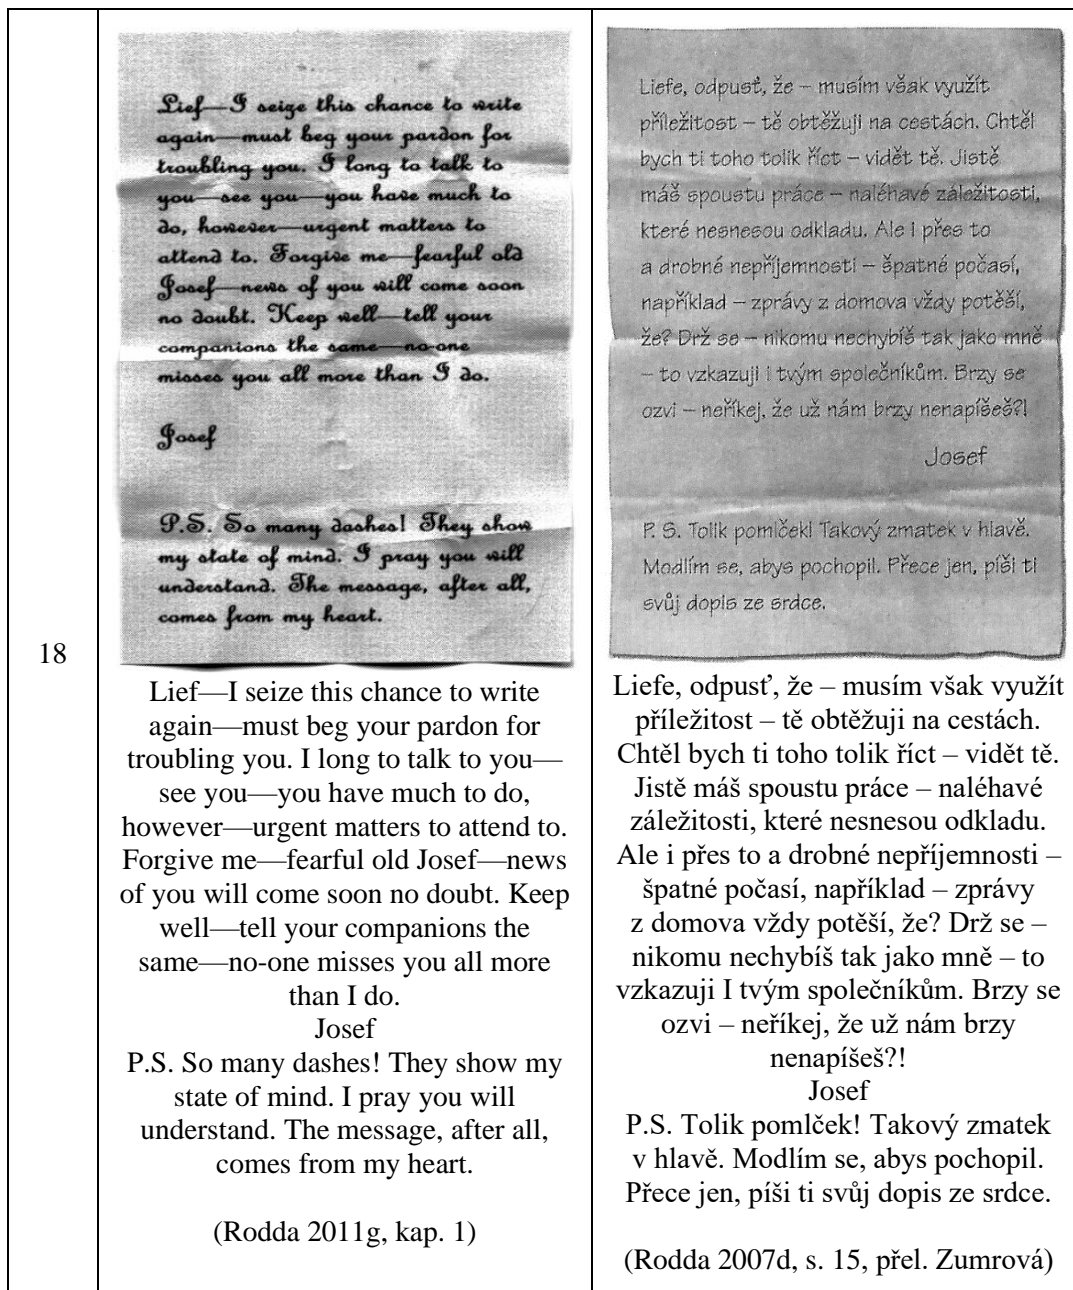 18
Lief—I seize this chance to write
again—must beg your pardon for
troubling you. I long to talk to
you—see you—you have much to
do, however—urgent matters to
attend to. Forgive me—fearful old
Josef—news of you will come soon
no doubt. Keep well—tell your
companions the same—no-one
misses you all more than I do.
Josef
P.S. So many dashes! They show
my state of mind. I pray you will
understand. The message, after all,
comes from my heart.
Lief—I seize this chance to write
again—must beg your pardon for
troubling you. I long to talk to you—
see you—you have much to do,
however—urgent matters to attend to.
Forgive me—fearful old Josef—news
of you will come soon no doubt. Keep
well—tell your companions the
same—no-one misses you all more
than I do.
Josef
P.S. So many dashes! They show my
state of mind. I pray you will
understand. The message, after all,
comes from my heart.
(Rodda 2011g, kap. 1)
Liefe, odpusť, že – musím však využít
příležitost – tě obtěžuji na cestách. Chtěl
bych ti toho tolik říct – vidět tě. Jistě
máš spoustu práce – naléhavé záležitosti,
které nesnesou odkladu. Ale i přes to
a drobné nepříjemnosti – špatné počasí,
například – zprávy z domova vždy potěší,
že? Drž se – nikomu nechybíš tak jako mně
– to vzkazuji i tvým společníkům. Brzy se
ozvi – neříkej, že už nám brzy nenapíšeš?!
Josef
P. S. Tolik pomlček! Takový zmatek v hlavě.
Modlím se, abys pochopil. Přece jen, píši ti
svůj dopis ze srdce.
Liefe, odpusť, že – musím však využít
příležitost – tě obtěžuji na cestách.
Chtěl bych ti toho tolik říct – vidět tě.
Jistě máš spoustu práce – naléhavé
záležitosti, které nesnesou odkladu.
Ale i přes to a drobné nepříjemnosti –
špatné počasí, například – zprávy
z domova vždy potěší, že? Drž se –
nikomu nechybíš tak jako mně – to
vzkazuji I tvým společníkům. Brzy se
ozvi – neříkej, že už nám brzy
nenapíšeš?!
Josef
P.S. Tolik pomlček! Takový zmatek
v hlavě. Modlím se, abys pochopil.
Přece jen, píši ti svůj dopis ze srdce.
(Rodda 2007d, s. 15, přel. Zumrová)